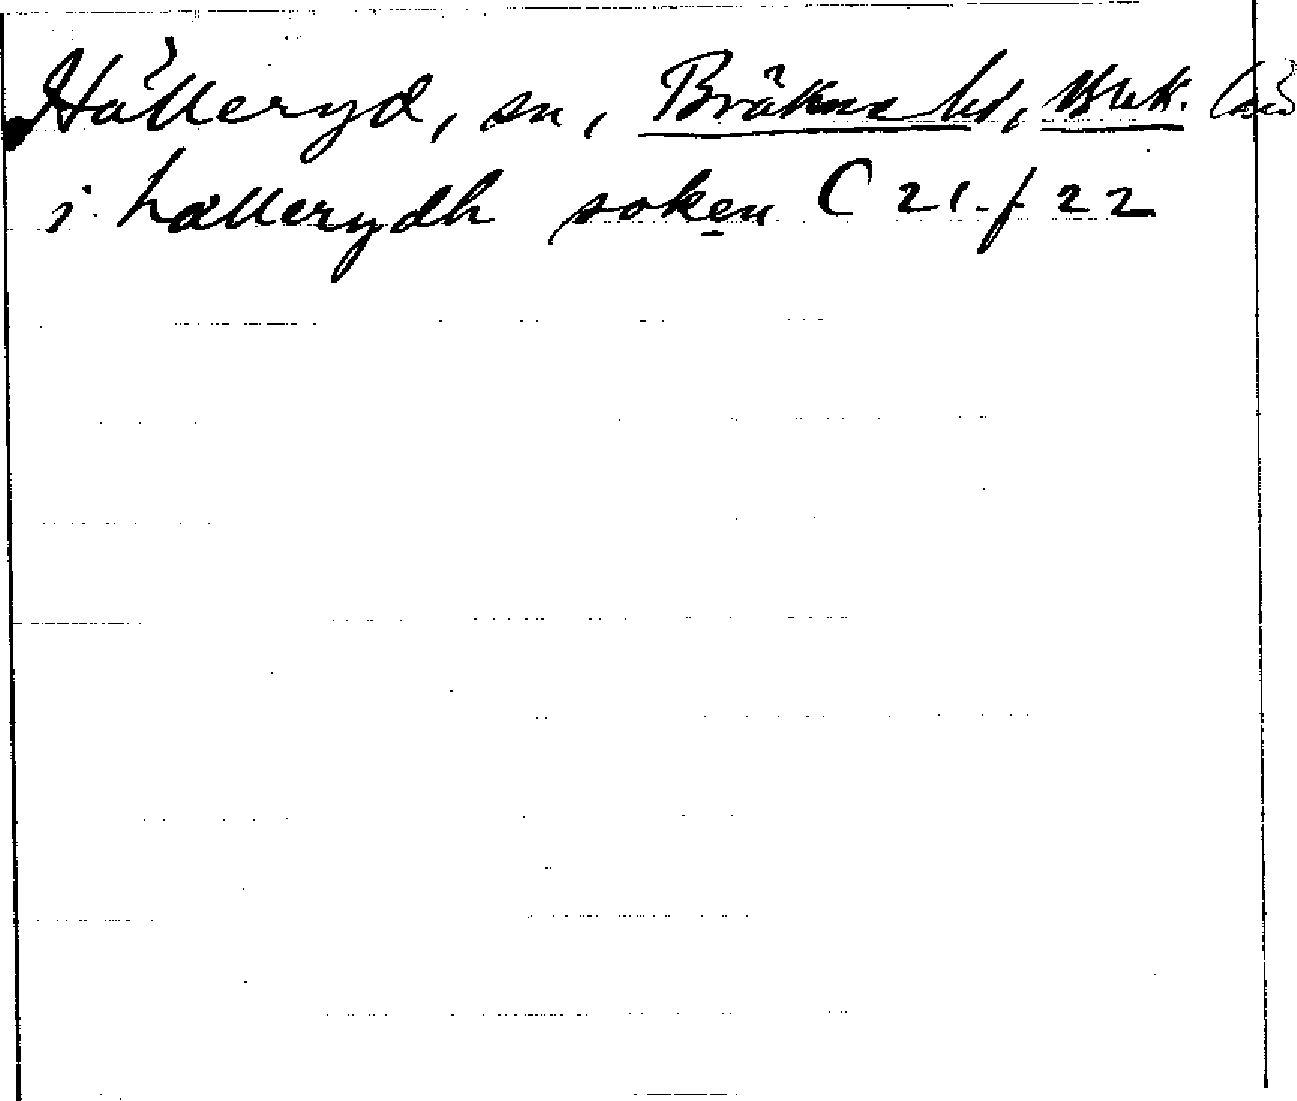 Hälleryd, sn, Bräkne hd, Blek. län
i hællerydh soken C 21. f 22